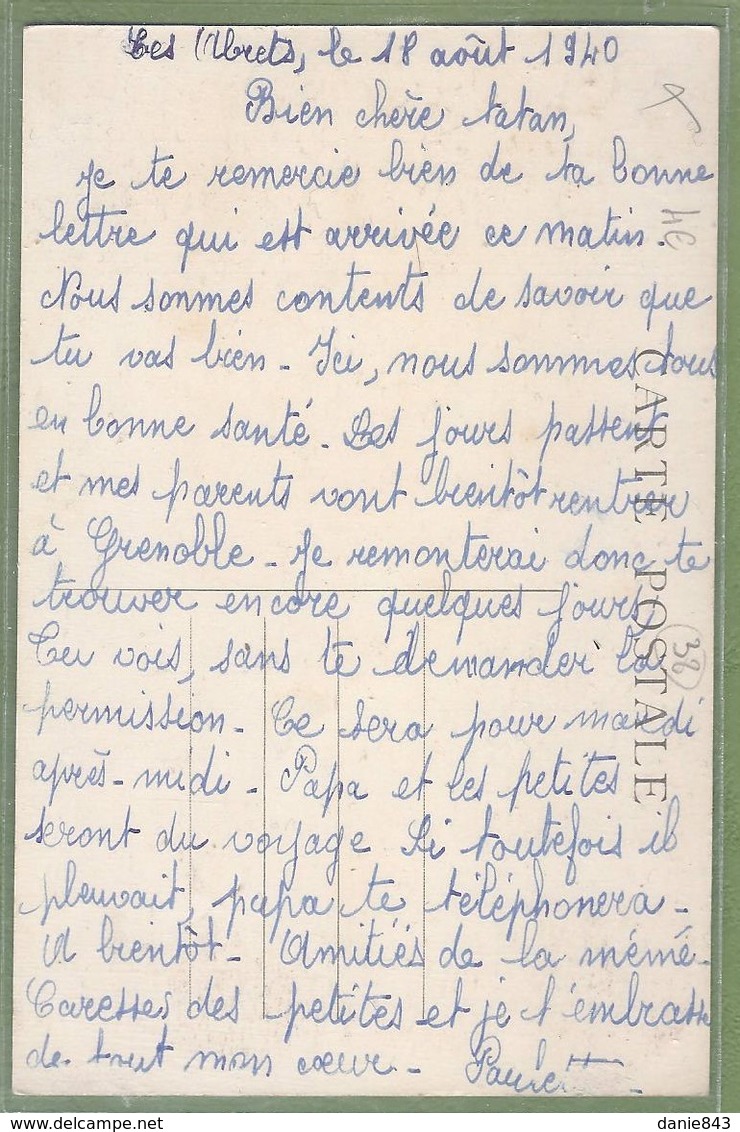 Les Abrets, le 18 août 1940
Bien chère tatan,
Je te remercie bien de ta bonne
lettre qui est arrivée ce matin.
Nous sommes contents de savoir que
tu vas bien - Ici, nous sommes tous
en bonne santé. Les jours passent
et mes parents vont bientôt rentrer
à Grenoble - Je remonterai donc te
trouver encore quelques jours,
Tu vois, sans te demander la
permission - Ce sera pour mardi
après-midi - Papa et les petites
seront du voyage Si toutefois il
pleuvait, papa te téléphonera -
A bientôt - Amitiés de la mémé -
Caresses des petites et je t'embrasse
de tout mon cœur - Paulette -
CARTE POSTALE
4€
38
danie843